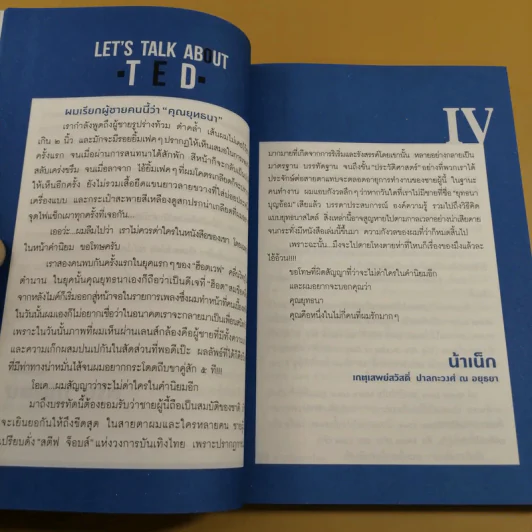 LET'S TALK ABOUT
·TED·
ผมเรียกผู้ชายคนนี้ว่า "คุณยุทธนา"
เรากำลังพูดถึงผู้ชายรูปร่างท้วม ดำคล้ำ เส้นผมไม่เคย
เกิน ๒ นิ้ว และมักจะมีรอยยิ้มเฟคๆ ปรากฏให้เห็นเสมอใน
ครั้งแรก จนเมื่อผ่านการสนทนาได้สักพัก สีหน้าก็จะ
สลับเคร่งขรึม จนเมื่อลาจาก ไอ้ยิ้มเฟคๆ ที่ผมใคร
ให้เห็นอีกครั้ง ยังไม่รวมเสื้อยืดแขนยาวลายขวางที่ใส่
เครื่องแบบ และกระเป๋าสะพายสีเหลืองดูสกปรกน่าเกลียด
จุดไฟแช็กเผาทุกครั้งที่เจอกัน...
เออว่ะ...ผมลืมไปว่า เราไม่ควรด่าใครในหนังสือของเขา
ในหน้าคำนิยม ขอโทษครับ
เราสองคนพบกันครั้งแรกในยุคแรกๆ ของ "ฮอตเวฟ"
ตำนาน ในยุคนั้นคุณยุทธนาเองก็ถือว่าเป็นดีเจที่ "ฮ็อต"
จากหลังไมค์ก็เริ่มออกสู่หน้าจอในรายการเพลงซึ่งผมทำหน้าที่
ในวันนั้นผมเองก็ไม่อยากเชื่อว่าในอนาคตเราจะกลายมาเป็นเพื่อน
เพราะในวันนั้นภาพที่ผมเห็นผ่านเลนส์กล้องคือผู้ชายที่มี
และความเก๊กผสมปนเปกันในสัดส่วนที่พอดีเป๊ะ ผลลัพธ์ที่ได้
ที่มีท่าทางน่าหมั่นไส้จนผมอยากกระโดดถีบขาคู่สัก ๕ ที!!!
โอเค...ผมสัญญาว่าจะไม่ด่าใครในคำนิยมอีก
มาถึงบรรทัดนี้ต้องยอมรับว่าชายผู้นี้ถือเป็นสมบัติของชาติ
จะเยินยอกันให้ถึงขีดสุด ในสายตาผมและใครหลายคน
เปรียบดั่ง "สตีฟ จ็อบส์" แห่งวงการบันเทิงไทย เพราะ
IV
มากมายที่เกิดจากการริเริ่มและรังสรรค์โดยเขานั้น หลายอย่างกลายเป็น
มาตรฐาน บรรทัดฐาน จนถึงขั้น "ประวัติศาสตร์" อย่างที่พวกเราได้
ประจักษ์ต่อสายตาแทบจะตลอดอายุการทำงานของชายผู้นี้ ในฐานะ
คนทำงาน ผมแอบกังวลลึกๆ ว่าหากวันใดที่เราไม่มีชายที่ชื่อ "ยุทธนา
บุญอ้อม" เสียแล้ว บรรดาประสบการณ์ องค์ความรู้ รวมไปถึงวิธีคิด
แบบยุทธนาสไตล์ สิ่งเหล่านี้อาจสูญหายไปตามกาลเวลาอย่างน่าเสียดาย
จนกระทั่งมีหนังสือเล่มนี้ขึ้นมา ความกังวลของผมที่ว่าก็หมดสิ้นไป
เพราะฉะนั้น...มึงจะไปตายโหงตายห่าที่ไหนก็เรื่องของมึงแล้วละ
ไอ้อ้วน!!!!
ขอโทษที่ผิดสัญญาที่ว่าจะไม่ด่าใครในคำนิยมอีก
และผมอยากจะบอกคุณว่า
คุณยุทธนา
คุณคือหนึ่งในไม่กี่คนที่ผมรักมากๆ
น้าเน็ก
เกตุเสพย์สวัสดิ์ ปาลกะวงศ์ ณ อยุธยา